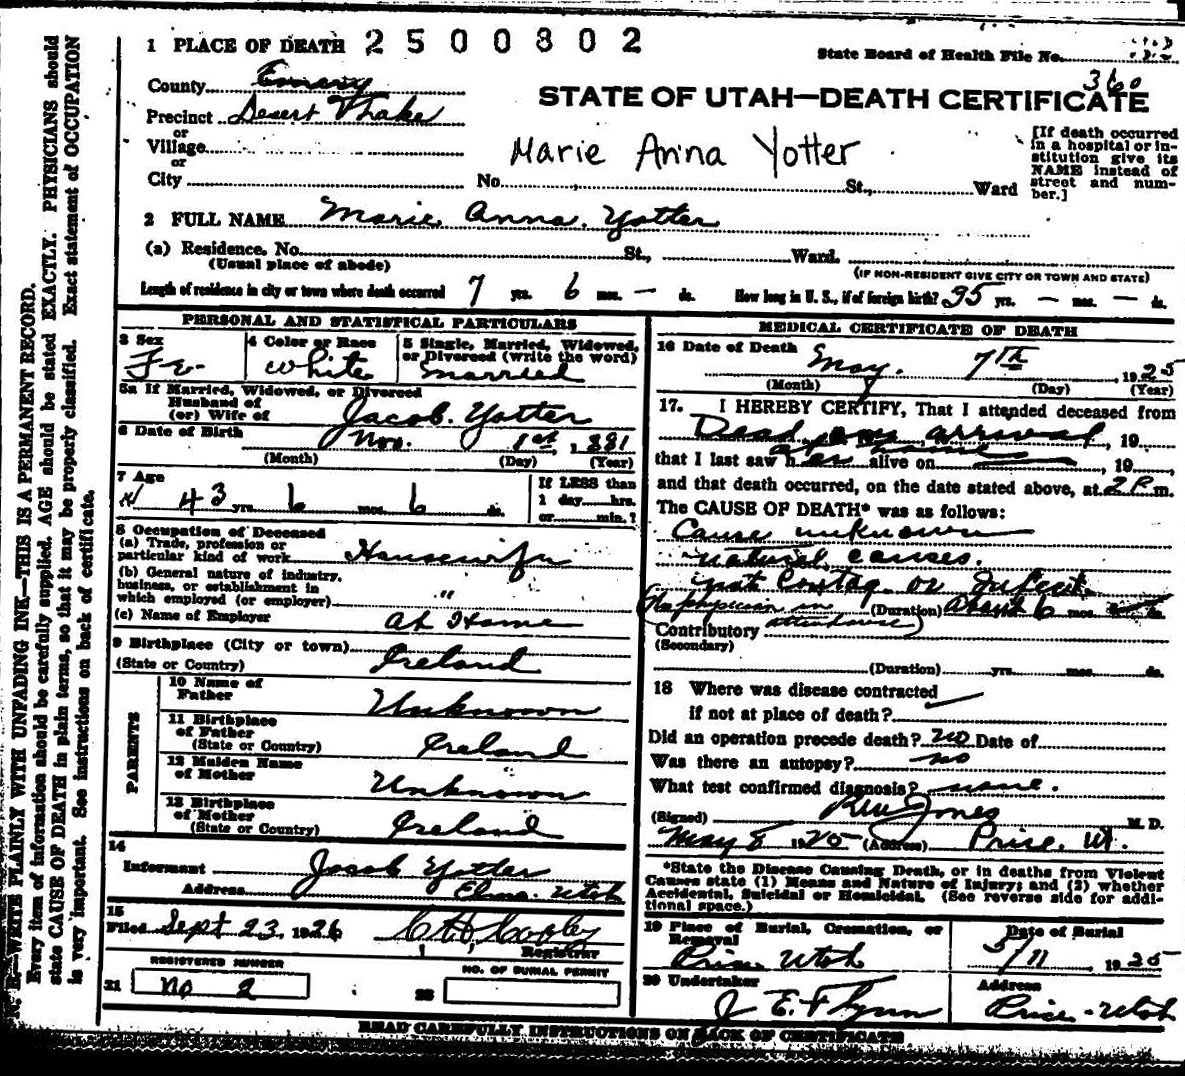 1 PLACE OF DEATH 2500802
State Board of Health File No.
County Emery
360
STATE OF UTAH—DEATH CERTIFICATE
Precinct Desert Lake
or
Village
or
City No. St., Ward
Marie Anna Yotter
[If death occurred
in a hospital or in-
stitution give its
NAME instead of
street and num-
ber.]
2 FULL NAME Marie Anna Yotter
(a) Residence. No. St., Ward.
(Usual place of abode)
(IF NON-RESIDENT GIVE CITY OR TOWN AND STATE)
Length of residence in city or town where death occurred 7 yrs. 6 mos. — ds. How long in U. S., if of foreign birth? 35 yrs. — mos. — ds.
PERSONAL AND STATISTICAL PARTICULARS
3 Sex Fe
4 Color or Race White
5 Single, Married, Widowed,
or Divorced (write the word)
married
5a If Married, Widowed, or Divorced
Husband of
(or) Wife of Jacob Yotter
6 Date of Birth Nov. 1st, 1881
(Month) (Day) (Year)
7 Age
43 yrs. 6 mos. 6 ds.
If LESS than
1 day hrs.
or min.?
8 Occupation of Deceased
(a) Trade, profession or
particular kind of work Housewife
(b) General nature of industry,
business, or establishment in
which employed (or employer) "
(c) Name of Employer At Home
9 Birthplace (City or town)
(State or Country) Ireland
PARENTS
10 Name of
Father Unknown
11 Birthplace
of Father
(State or Country) Ireland
12 Maiden Name
of Mother Unknown
13 Birthplace
of Mother
(State or Country) Ireland
14
Informant Jacob Yotter
Address Elmo. Utah
15
Filed Sept 23. 1926
Registrar
REGISTERED NUMBER
21 No 2
NO. OF BURIAL PERMIT
22
MEDICAL CERTIFICATE OF DEATH
16 Date of Death May. 7th, 1925
(Month) (Day) (Year)
17. I HEREBY CERTIFY, That I attended deceased from
Dead on arrival, 19
at home
that I last saw her alive on , 19
and that death occurred, on the date stated above, at 2 P m.
The CAUSE OF DEATH* was as follows:
Cause unknown
natural causes.
not Contag. or Infect.
(No physician in (Duration) About 6 mos. ds.
Contributory attendance)
(Secondary)
(Duration) yrs. mos. ds.
18 Where was disease contracted
if not at place of death?
Did an operation precede death? no Date of
Was there an autopsy? no
What test confirmed diagnosis? none.
(Signed) Jones M. D.
May 8 1925 (Address) Price. Ut.
*State the Disease Causing Death, or in deaths from Violent
Causes state (1) Means and Nature of Injury; and (2) whether
Accidental, Suicidal or Homicidal. (See reverse side for addi-
tional space.)
19 Place of Burial, Cremation, or
Removal
Price Utah
Date of Burial
5/11 1925
20 Undertaker
J. E. Flynn
Address
Price - Utah
READ CAREFULLY INSTRUCTIONS ON BACK OF CERTIFICATE
N. B.—WRITE PLAINLY WITH UNFADING INK—THIS IS A PERMANENT RECORD.
Every item of information should be carefully supplied. AGE should be stated EXACTLY. PHYSICIANS should
state CAUSE OF DEATH in plain terms, so that it may be properly classified. Exact statement of OCCUPATION
is very important. See instructions on back of certificate.